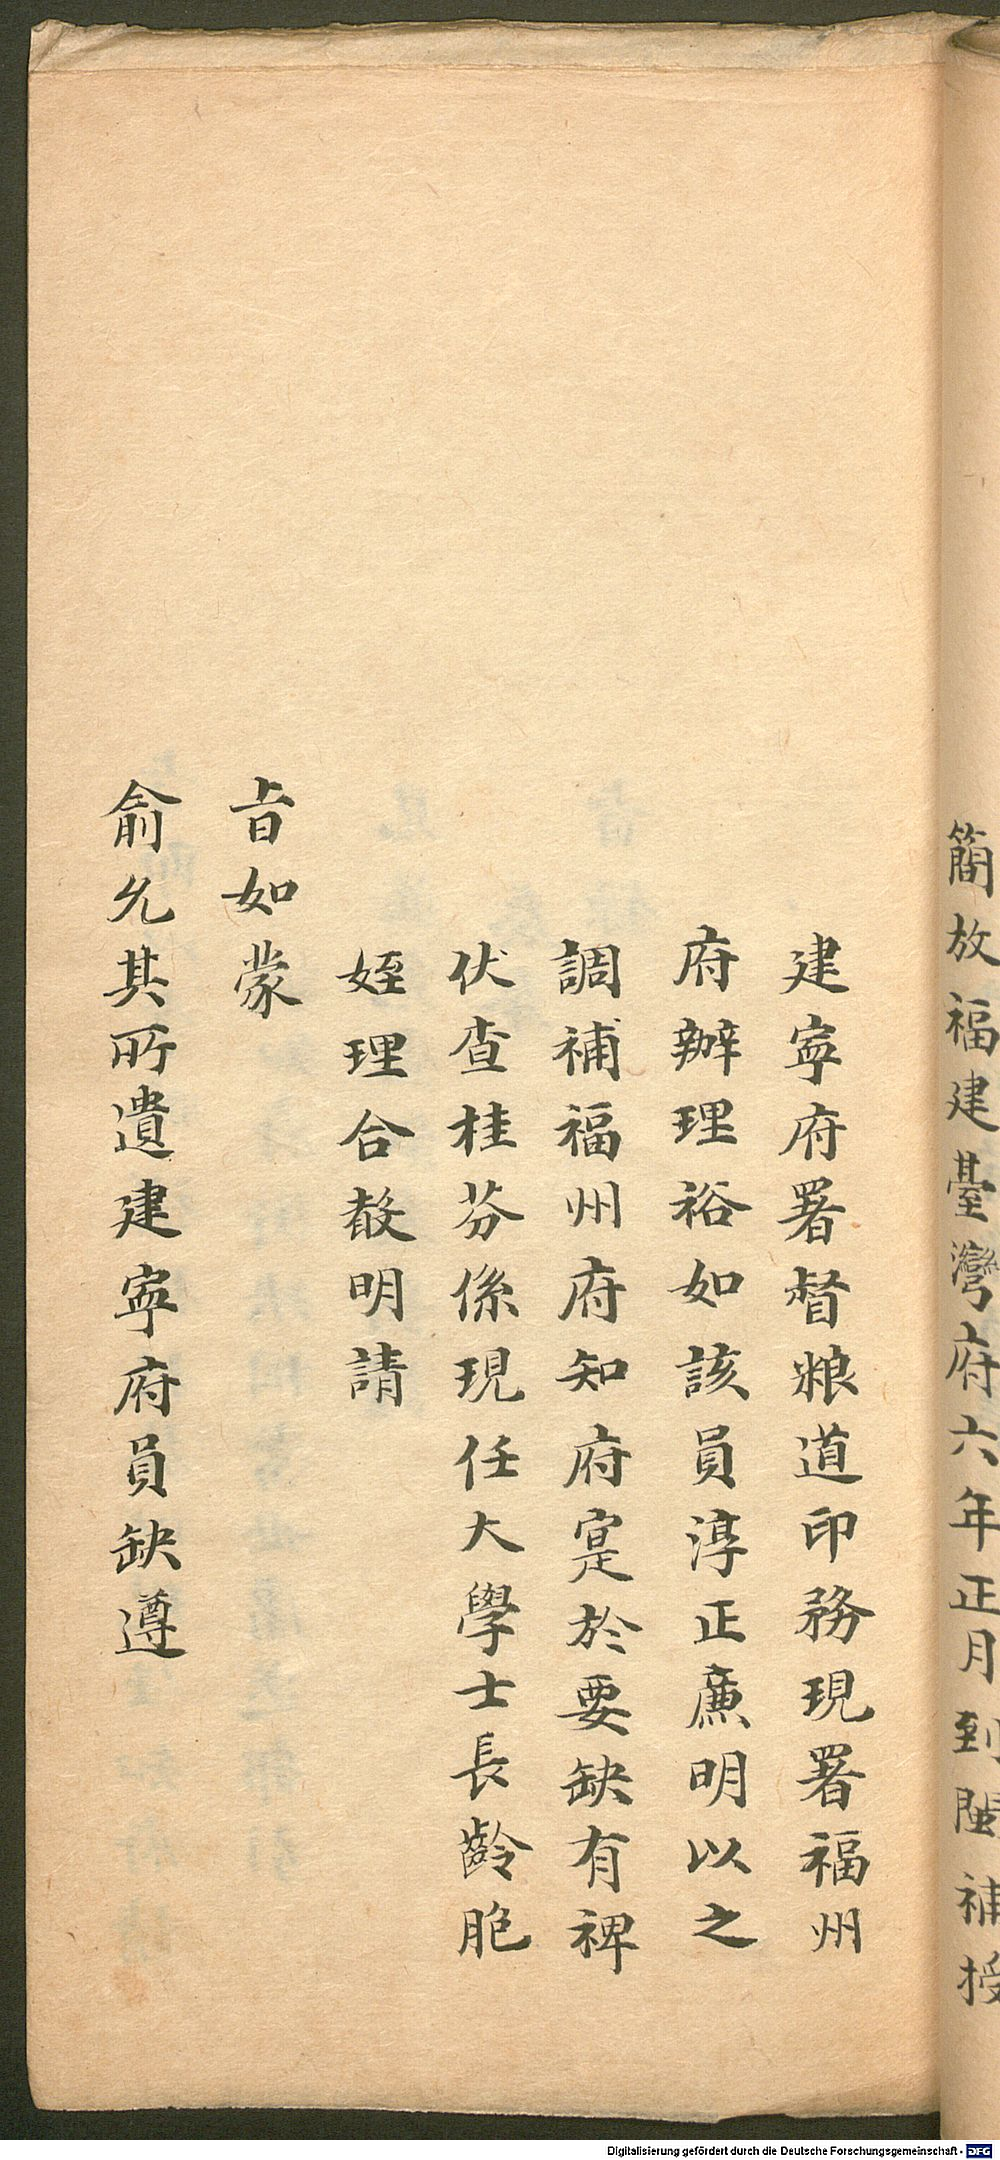 簡放福建臺灣府六年正月到閩補授
建寧府署督粮道印務現署福州
府辦理裕如該員淳正廉明以之
調補福州府知府寔於要缺有裨
伏查桂芬係現任大學士長齡胞
姪理合聲明請
旨如蒙
俞允其所遺建寧府員缺遵
Digitalisierung gefördert durch die Deutsche Forschungsgemeinschaft - DFG